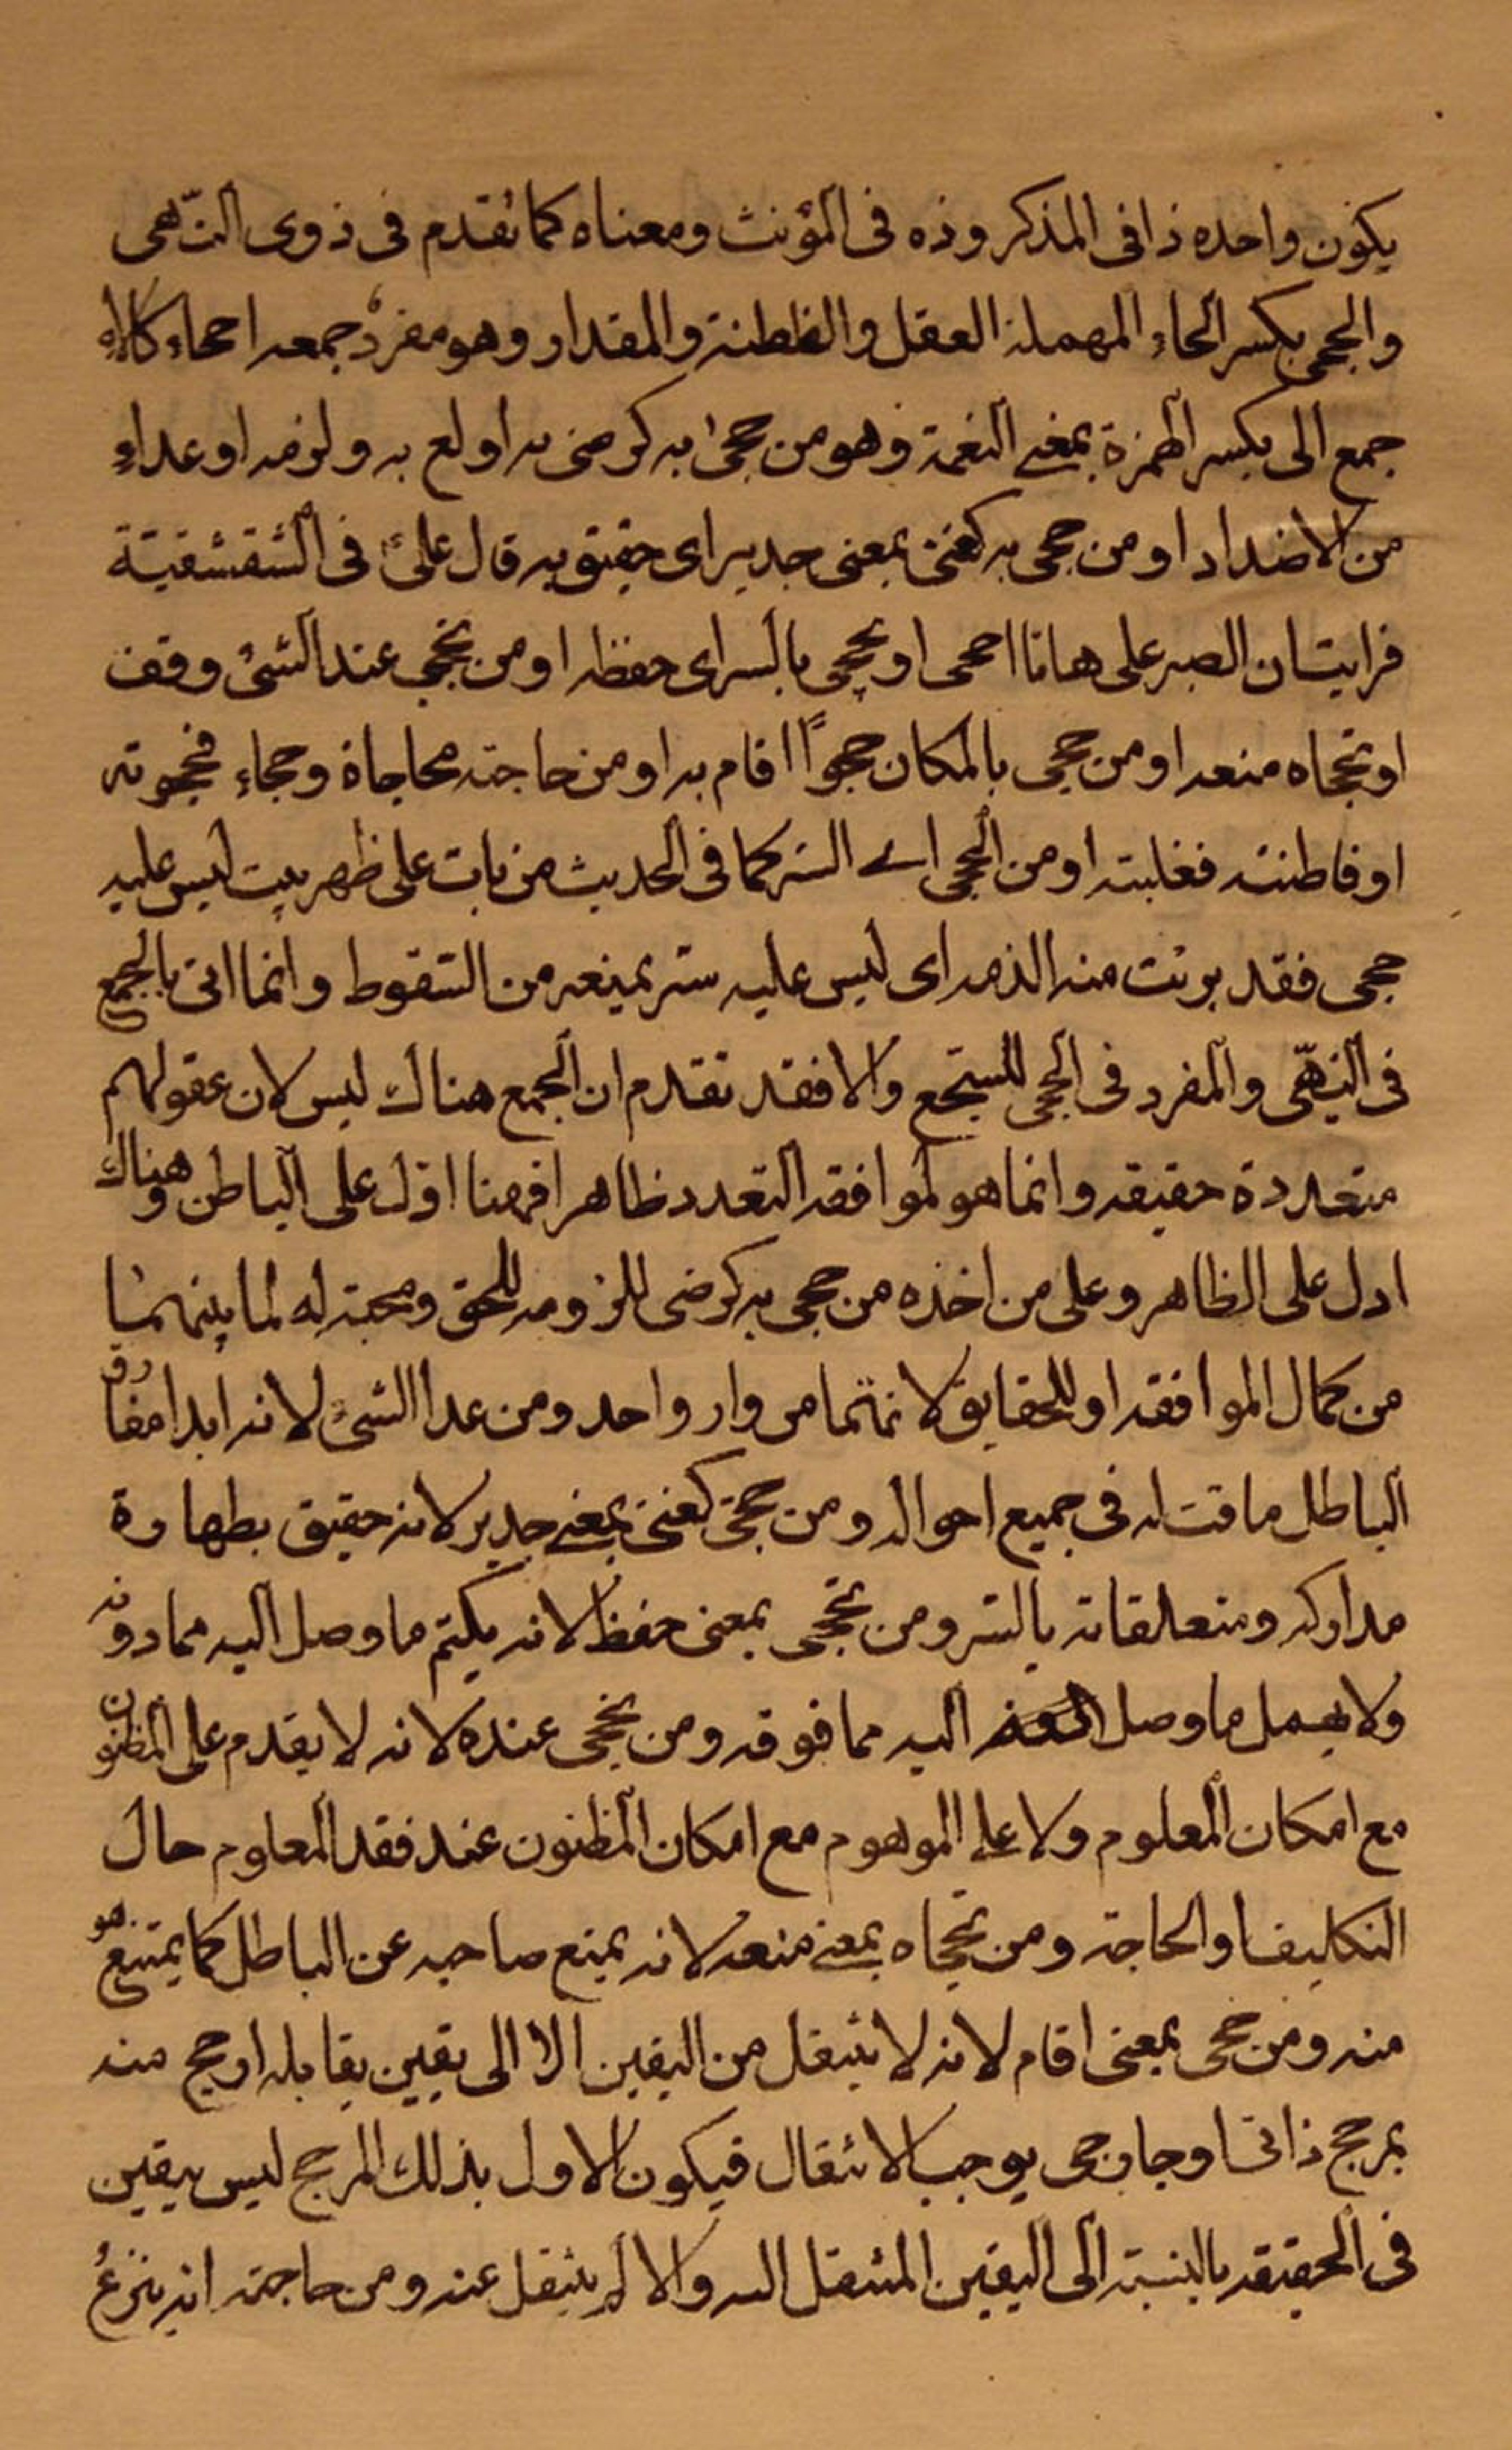 يكون واحده ذا فى المذكر وذه فى المؤنث ومعناه كما تقدم فى ذوى النّهى
والحجى بكسر الحاء المهملة العقل والفطنة والمقدار وهو مفردٌ جمعه احجاء كالاء
جمع الى بكسر الهمزة بمعنى النعمة وهو من حجىٰ به كرضى به اولع به ولزمه او عداءِ
من الاضداد او من حجى به كغنى بمعنى جدير اى حقيق به قال علىؑ فى الشقشقيّة
فرايت ان الصبر على هاتا احجى او تحجى بالسر اى حفظه او من تحجى عند الشئ وقف
او تحجاه منعه او من حجى بالمكان حجواً اقام به او من حاجته محاجاة وحجاء فحجوته
او فاطنته فغلبته او من الحجى اى الستر كما فى الحديث من بات على ظهر بيت ليس عليه
حجى فقد برئت منه الذمه اى ليس عليه ستر يمنعه من السّقوط وانما اتى بالجمع
فى النّهّى والمفرد فى الحجى للسّجع والا فقد تقدم ان الجمع هناك ليس لان عقولهم
متعددة حقيقه وانما هو لموافقه التعدد ظاهرا فهنا ادل على الباطن وهناك
ادل على الظاهر وعلى من اخذه من حجى به كرضى للزومه للحق ومحبته له لما بينهما
من كمال الموافقه او للحقايق لانهما من وار واحد ومن عدا الشئ لانه ابدا مفارق
الباطل ماقت له فى جميع احواله ومن حجى كغنى بمعنى جدير لانه حقيق بطهارة
مداركه ومتعلقاته بالستر ومن تحجى بمعنى حفظ لانه يكتم ما وصل اليه مما دونه
ولا يهمل ما وصل اليه مما فوقه ومن تحجى عنده لانه لا يقدم على المظنون
مع امكان المعلوم ولا على الموهوم مع امكان المظنون عند فقد المعلوم حال
التكليف او الحاجة ومن تحجاه بمعنى منعه لانه يمنع صاحبه عن الباطل كما يمتنع هو
منه ومن حجى بمعنى اقام لانه لا ينتقل من اليقين الا الى يقين يقابله ارجح منه
بمرجح ذاتى او خارجى يوجب الانتقال فيكون الاول بذلك المرجح ليس بيقين
فى الحقيقه بالنسبة الى اليقين المنتقل اليه والا لم ينتقل عنه ومن حاجته انه ينزعُ